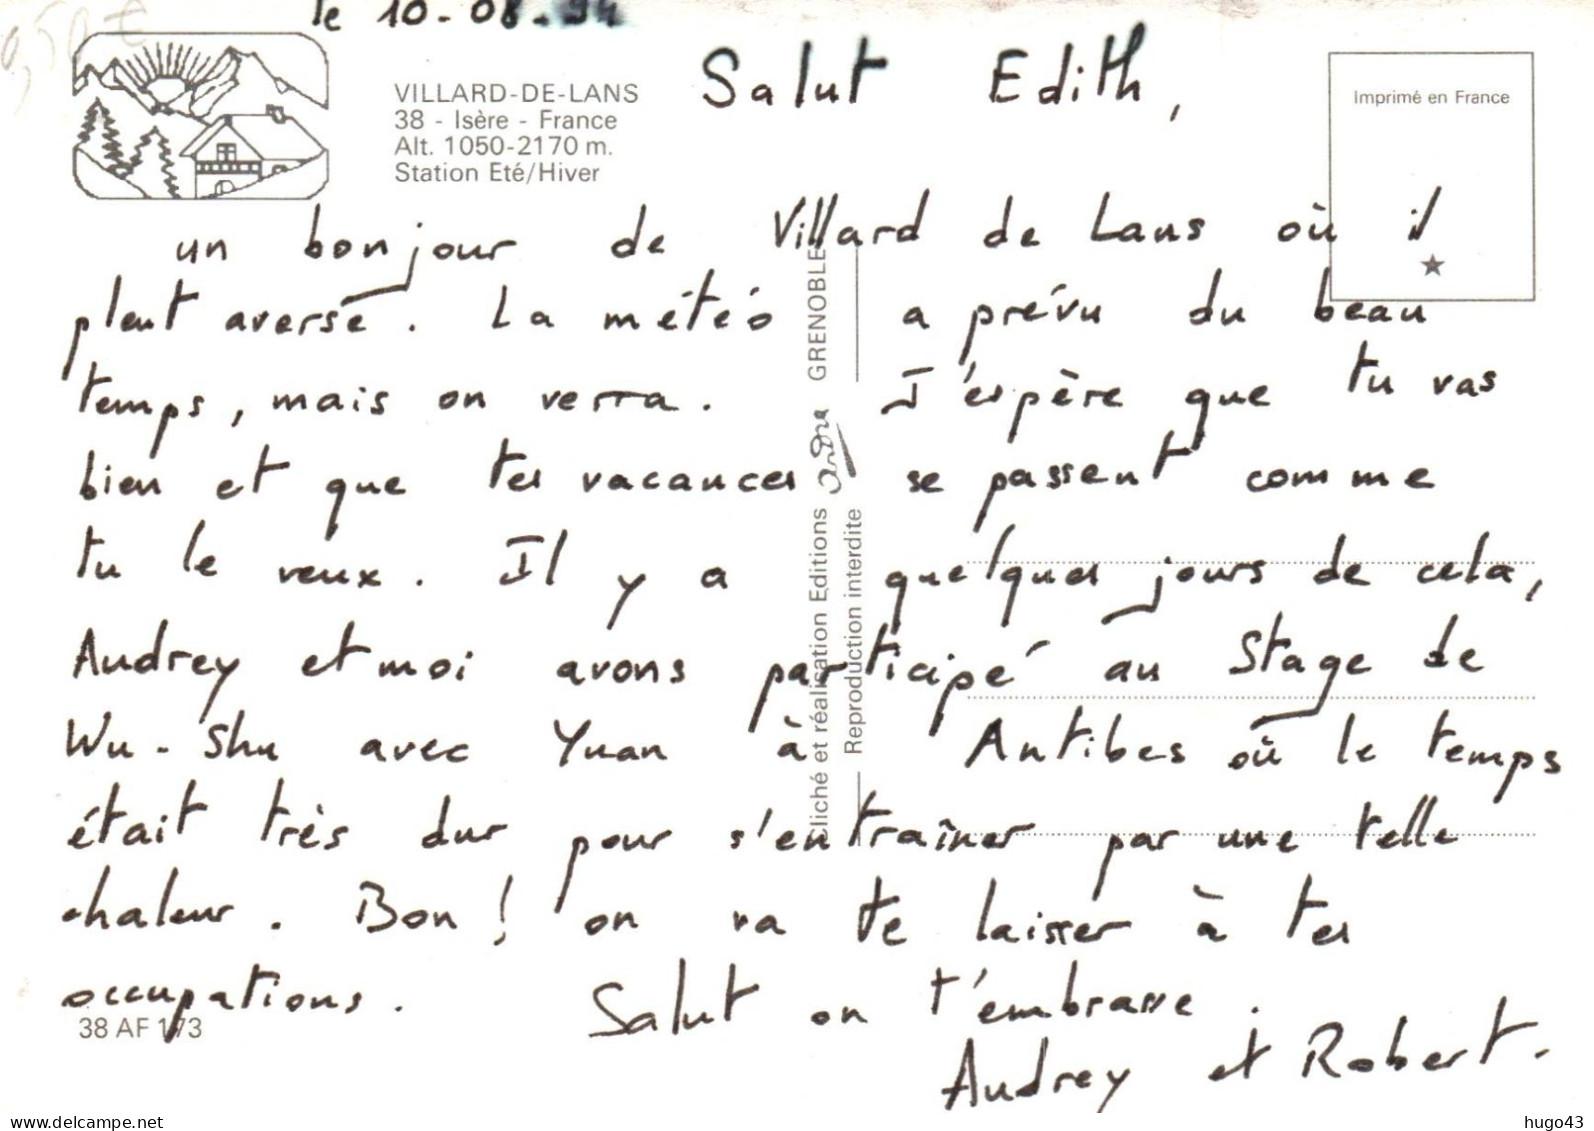 le 10-08-94
0,50 €
VILLARD-DE-LANS
38 - Isère - France
Alt. 1050-2170 m.
Station Eté/Hiver
Imprimé en France
Salut Edith,
un bonjour de Villard de Lans où il
pleut averse. La météo a prévu du beau
temps, mais on verra. J'espère que tu vas
bien et que tes vacances se passent comme
tu le veux. Il y a quelques jours de cela,
Audrey et moi avons participé au Stage de
Wu-Shu avec Yuan à Antibes où le temps
était très dur pour s'entraîner par une telle
chaleur. Bon! on va te laisser à tes
occupations. Salut on t'embrasse.
Audrey et Robert.
Cliché et réalisation Editions André GRENOBLE
Reproduction interdite
38 AF 173
www.delcampe.net
hugo43